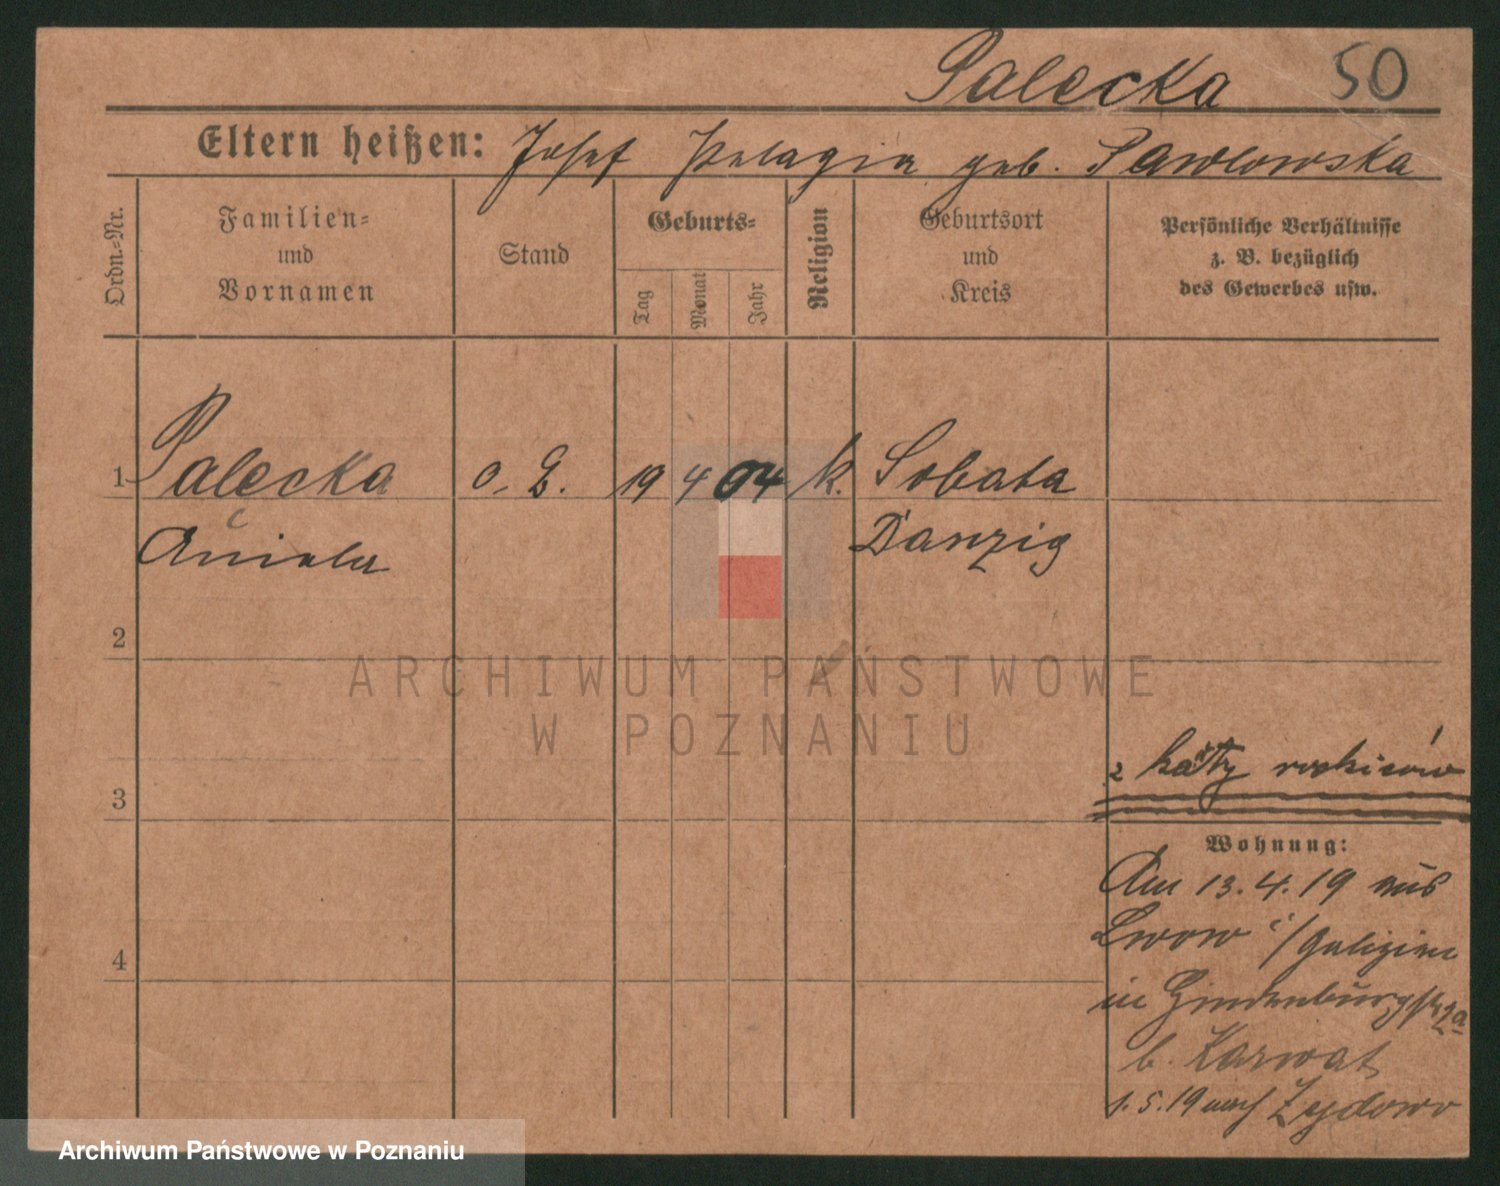 Palecka 50
Eltern heißen: Josef Pelagia geb. Pawlowska
Ordn.=Nr.
Familien=
und
Vornamen
Stand
Geburts=
Tag
Monat
Jahr
Religion
Geburtsort
und
Kreis
Persönliche Verhältnisse
z. B. bezüglich
des Gewerbes usw.
1 Palecka o. B. 19 4 04 k. Sobata
Aniela Danzig
2
ARCHIWUM PAŃSTWOWE
W POZNANIU
z karty rodziców
3
Wohnung:
Am 13.4.19 aus
Lwow i/Galizien
in Hindenburgstr 2a
4
b. Karwat
1.5.19 nach Zydowo
Archiwum Państwowe w Poznaniu